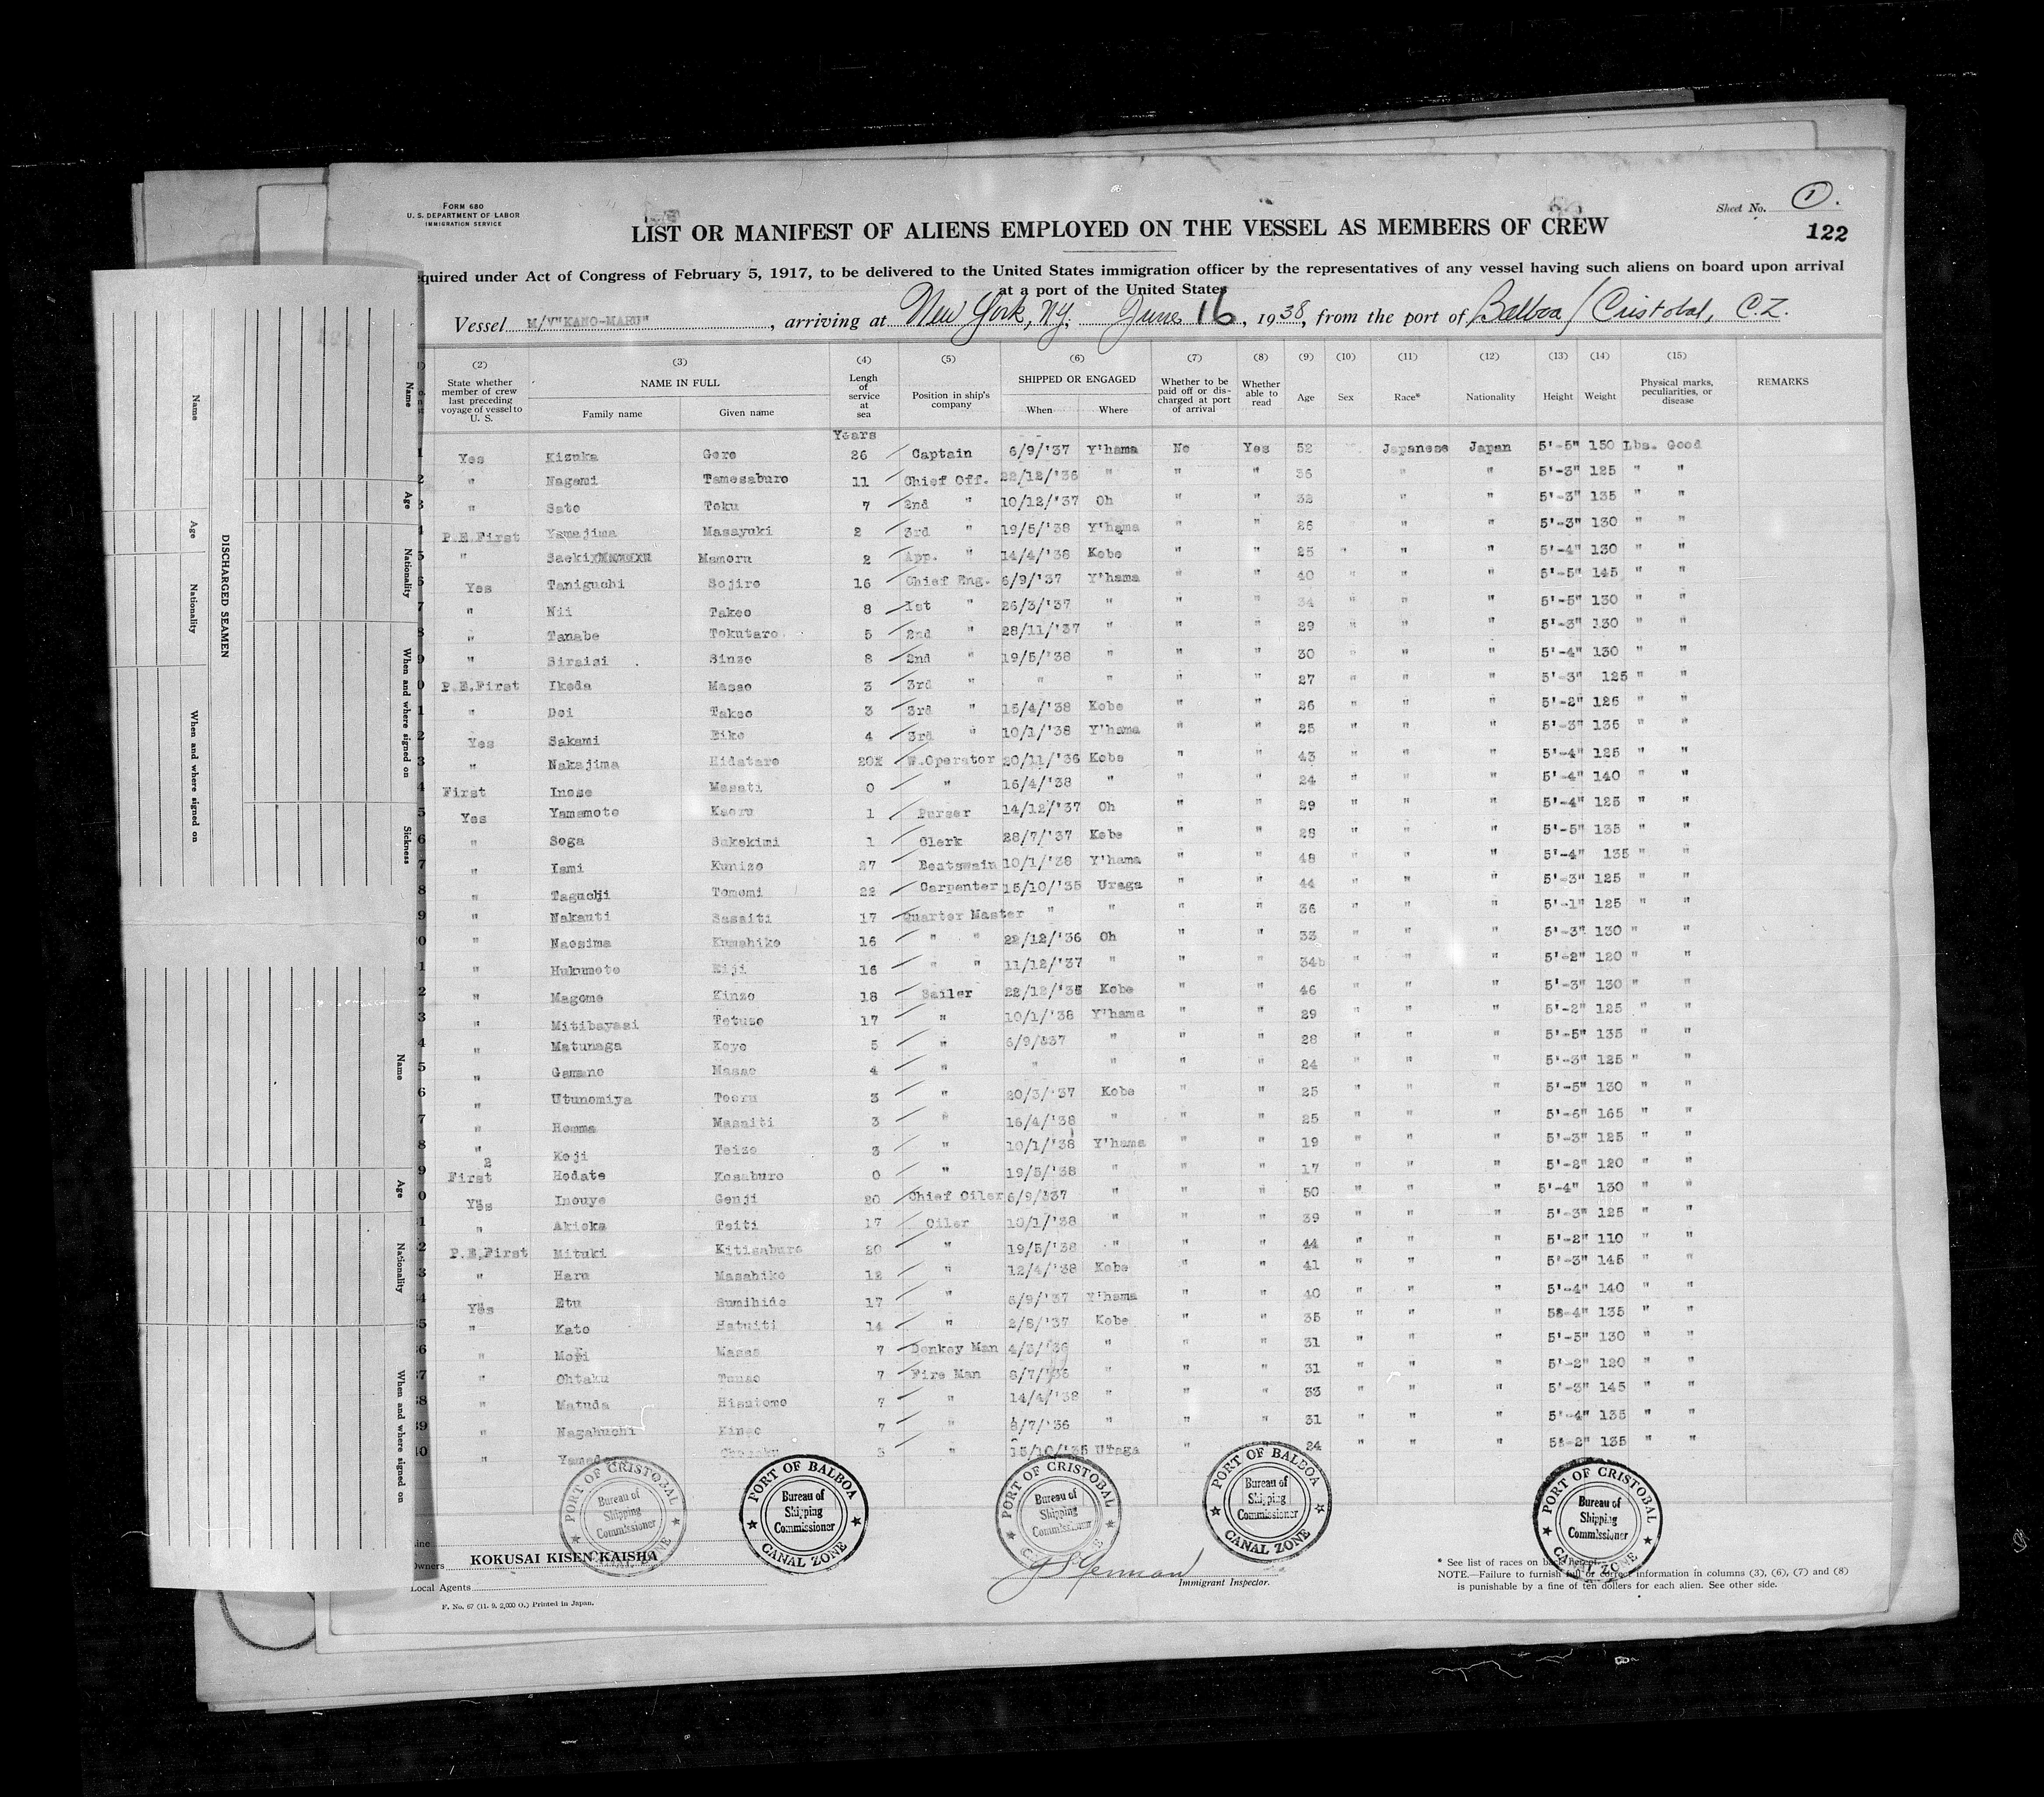 FORM 680
U. S. DEPARTMENT OF LABOR
IMMIGRATION SERVICE
Sheet No. 1.
122
LIST OR MANIFEST OF ALIENS EMPLOYED ON THE VESSEL AS MEMBERS OF CREW
equired under Act of Congress of February 5, 1917, to be delivered to the United States immigration officer by the representatives of any vessel having such aliens on board upon arrival
at a port of the United States
Vessel M/V"KANO-MARU", arriving at New York, NY. June 16, 1938, from the port of Balboa / Cristobal, C.Z.
(2) (3) (4) (5) (6) (7) (8) (9) (10) (11) (12) (13) (14) (15)
State whether member of crew last preceding voyage of vessel to U. S. NAME IN FULL Family name Given name Lengh of service at sea Position in ship's company SHIPPED OR ENGAGED When Where Whether to be paid off or discharged at port of arrival Whether able to read Age Sex Race* Nationality Height Weight Physical marks, peculiarities, or disease REMARKS
Years
1 Yes Kizuka Goro 26 Captain 6/9/'37 Y'hama No Yes 52 Japanese Japan 5'-5" 150 Lbs. Good
2 " Nagami Tamesaburo 11 Chief Off. 22/12/'36 " " " 36 " " 5'-3" 125 " "
3 " Sato Toku 7 2nd " 10/12/'37 Oh " " 32 " " 5'-3" 135 " "
4 P.E.First Yamajima Masayuki 2 3rd " 19/5/'38 Y'hama " " 26 " " 5'-3" 130 " "
5 " Saeki Mamoru 2 App. " 14/4/'38 Kobe " " 25 " " " 5'-4" 130 " "
6 Yes Taniguchi Sojiro 16 Chief Eng. 6/9/'37 Y'hama " " 40 " " " 5'-5" 145 " "
7 " Nii Takeo 8 1st " 26/3/'37 " " " 34 " " " 5'-5" 130 " "
8 " Tanabe Tokutaro 5 2nd " 28/11/'37 " " " 29 " " " 5'-3" 130 " "
9 " Siraisi Sinzo 8 2nd " 19/5/'38 " " " 30 " " " 5'-4" 130 " "
0 P.E.First Ikeda Masao 3 3rd " " " " " 27 " " " 5'-3" 125 " "
1 " Doi Takeo 3 3rd " 15/4/'38 Kobe " " 26 " " " 5'-2" 125 " "
2 Yes Sakami Eiko 4 3rd " 10/1/'38 Y'hama " " 25 " " " 5'-3" 135 " "
3 " Nakajima Hidetaro 20 W.Operator 20/11/'36 Kobe " " 43 " " " 5'-4" 125 " "
4 First Inose Masati 0 " 16/4/'38 " " " 24 " " " 5'-4" 140 " "
5 Yes Yamamoto Kaoru 1 Purser 14/12/'37 Oh " " 29 " " " 5'-4" 125 " "
6 " Soga Sukekimi 1 Clerk 28/7/'37 Kobe " " 28 " " " 5'-5" 135 " "
7 " Ismi Kunizo 27 Boatswain 10/1/'38 Y'hama " " 48 " " " 5'-4" 135 " "
8 " Taguchi Tomomi 22 Carpenter 15/10/'35 Uraga " " 44 " " " 5'-3" 125 " "
9 " Nakauti Sasaiti 17 Quarter Master " " " " 36 " " " 5'-1" 125 " "
0 " Naosima Kumahiko 16 " " 22/12/'36 Oh " " 33 " " " 5'-3" 130 " "
1 " Hukumoto Eiji 16 " " 11/12/'37 " " " 34 " " " 5'-2" 120 " "
2 " Magome Kinzo 18 Sailer 22/12/'35 Kobe " " 46 " " " 5'-3" 130 " "
3 " Mitibayasi Tetuzo 17 " 10/1/'38 Y'hama " " 29 " " " 5'-2" 125 " "
4 " Matunaga Koyo 5 " 6/9/'37 " " " 28 " " " 5'-5" 135 " "
5 " Gamano Masao 4 " " " " " 24 " " " 5'-3" 125 " "
6 " Utunomiya Tooru 3 " 20/3/'37 Kobe " " 25 " " " 5'-5" 130 " "
7 " Homma Masaiti 3 " 16/4/'38 " " " 25 " " " 5'-6" 165 " "
8 " Koji Teizo 3 " 10/1/'38 Y'hama " " 19 " " " 5'-3" 125 " "
9 First Hodate Kosaburo 0 " 19/5/'38 " " " 17 " " " 5'-2" 120 " "
0 Yes Inouye Genji 20 Chief Oiler 6/9/'37 " " " 50 " " " 5'-4" 130 " "
1 " Akioka Teiti 17 Oiler 10/1/'38 " " " 39 " " " 5'-3" 125 " "
2 P.E.First Mituki Kitisaburo 20 " 19/5/'38 " " " 44 " " " 5'-2" 110 " "
3 " Haru Masahiko 12 " 12/4/'38 Kobe " " 41 " " " 5'-3" 145 " "
4 Yes Etu Sumihide 17 " 6/9/'37 Y'hama " " 40 " " " 5'-4" 140 " "
5 " Kato Hatuiti 14 " 2/8/'37 Kobe " " 35 " " " 58-4" 135 " "
6 " Mori Masao 7 Donkey Man 4/3/'36 " " " 31 " " " 5'-5" 130 " "
7 " Ohtaku Tunao 7 Fire Man 8/7/'36 " " " 31 " " " 5'-2" 120 " "
38 " Matuda Hisatomo 7 " 14/4/'38 " " " 33 " " " 5'-3" 145 " "
39 " Nagahuchi Kingo 7 " 8/7/'36 " " " 31 " " " 5'-4" 135 " "
40 " 15/10/'35 Uraga " 24 " " " 5'-2" 135 " "
PORT OF CRISTOBAL Bureau of Shipping Commissioner CANAL ZONE
PORT OF BALBOA Bureau of Shipping Commissioner CANAL ZONE
PORT OF CRISTOBAL Bureau of Shipping Commissioner
PORT OF BALBOA Bureau of Shipping Commissioner CANAL ZONE
PORT OF CRISTOBAL Bureau of Shipping Commissioner CANAL ZONE
Line
Owners KOKUSAI KISEN KAISHA
Local Agents
Immigrant Inspector.
F. No. 67 (11. 9. 2,000 O.) Printed in Japan.
* See list of races on back hereof.
NOTE.—Failure to furnish full or correct information in columns (3), (6), (7) and (8)
is punishable by a fine of ten dollars for each alien. See other side.
DISCHARGED SEAMEN
Name Age Nationality When and where signed on
Name Age Nationality When and where signed on Sickness
Name Age Nationality When and where signed on